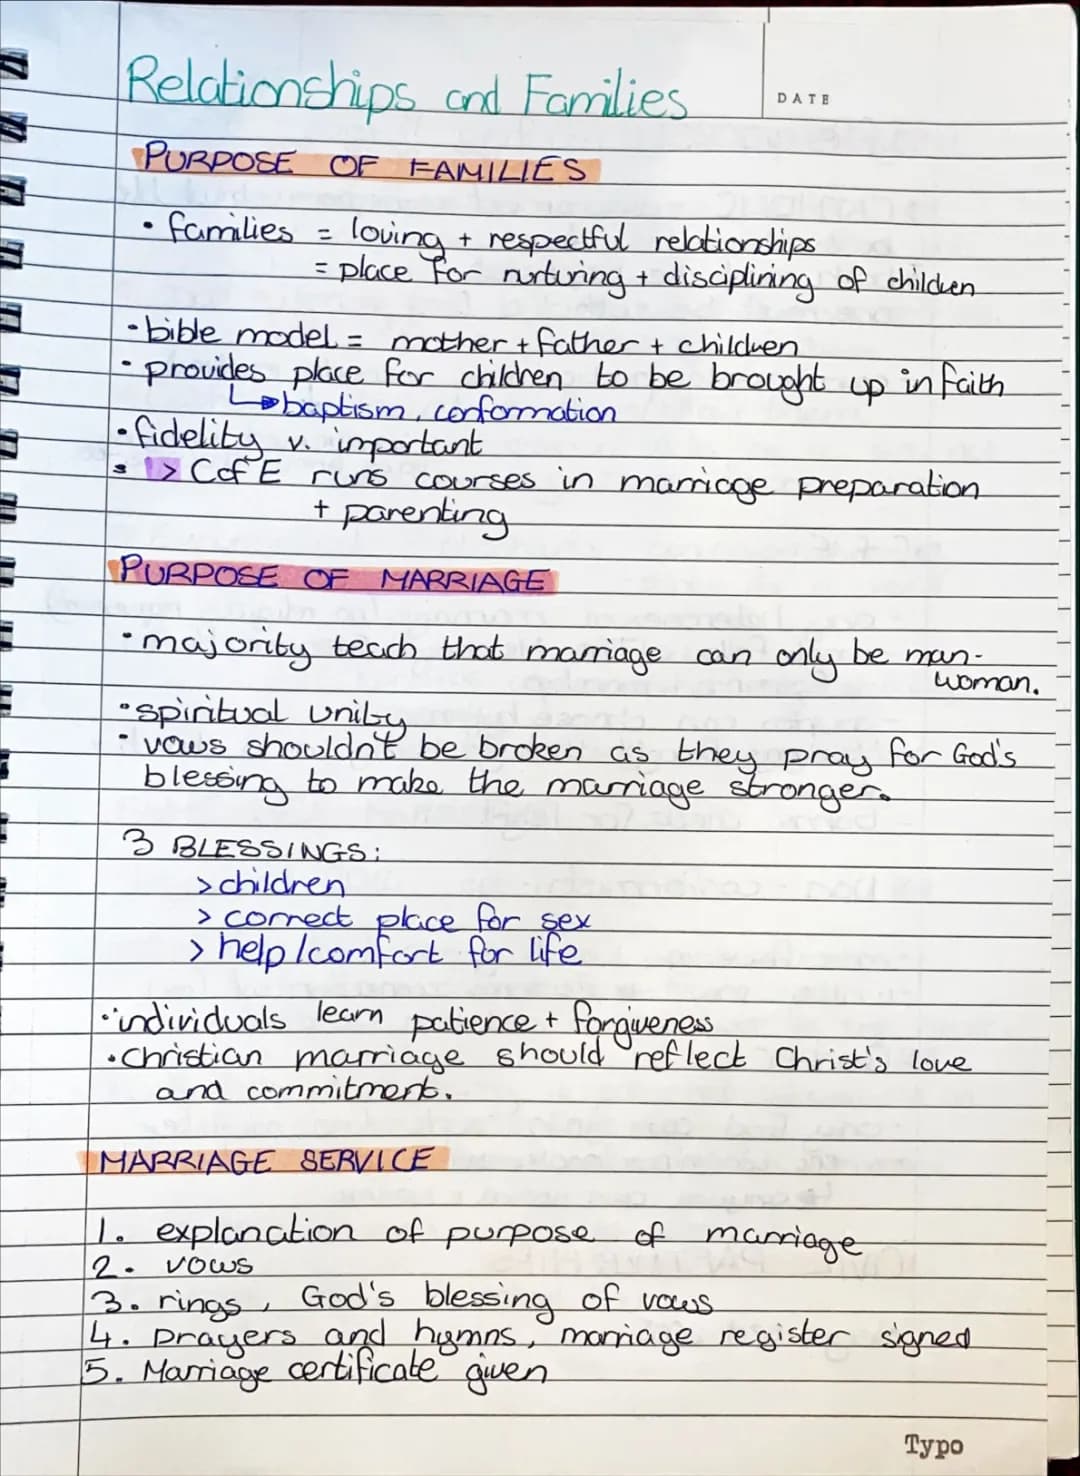 Relationships and Families
DATE
PURPOSE OF FAMILIES
• families = loving + respectful relationships
= place for nurturing + disciplining of children
• bible model = mother + father + children
• provides place for children to be brought up in faith
↳ baptism, conformation
• fidelity v. important
• > CofE runs courses in marriage preparation
+ parenting
PURPOSE OF MARRIAGE
• majority teach that marriage can only be man-
woman.
• spiritual unity
• vows shouldn't be broken as they pray for God's
blessing to make the marriage stronger.
3 BLESSINGS:
> children
> correct place for sex
> help/comfort for life
• individuals learn patience + forgiveness
• christian marriage should reflect Christ's love
and commitment.
MARRIAGE SERVICE
1. explanation of purpose of marriage
2. vows
3. rings, God's blessing of vows
4. prayers and hymns, marriage register signed
5. Marriage certificate given
Typo